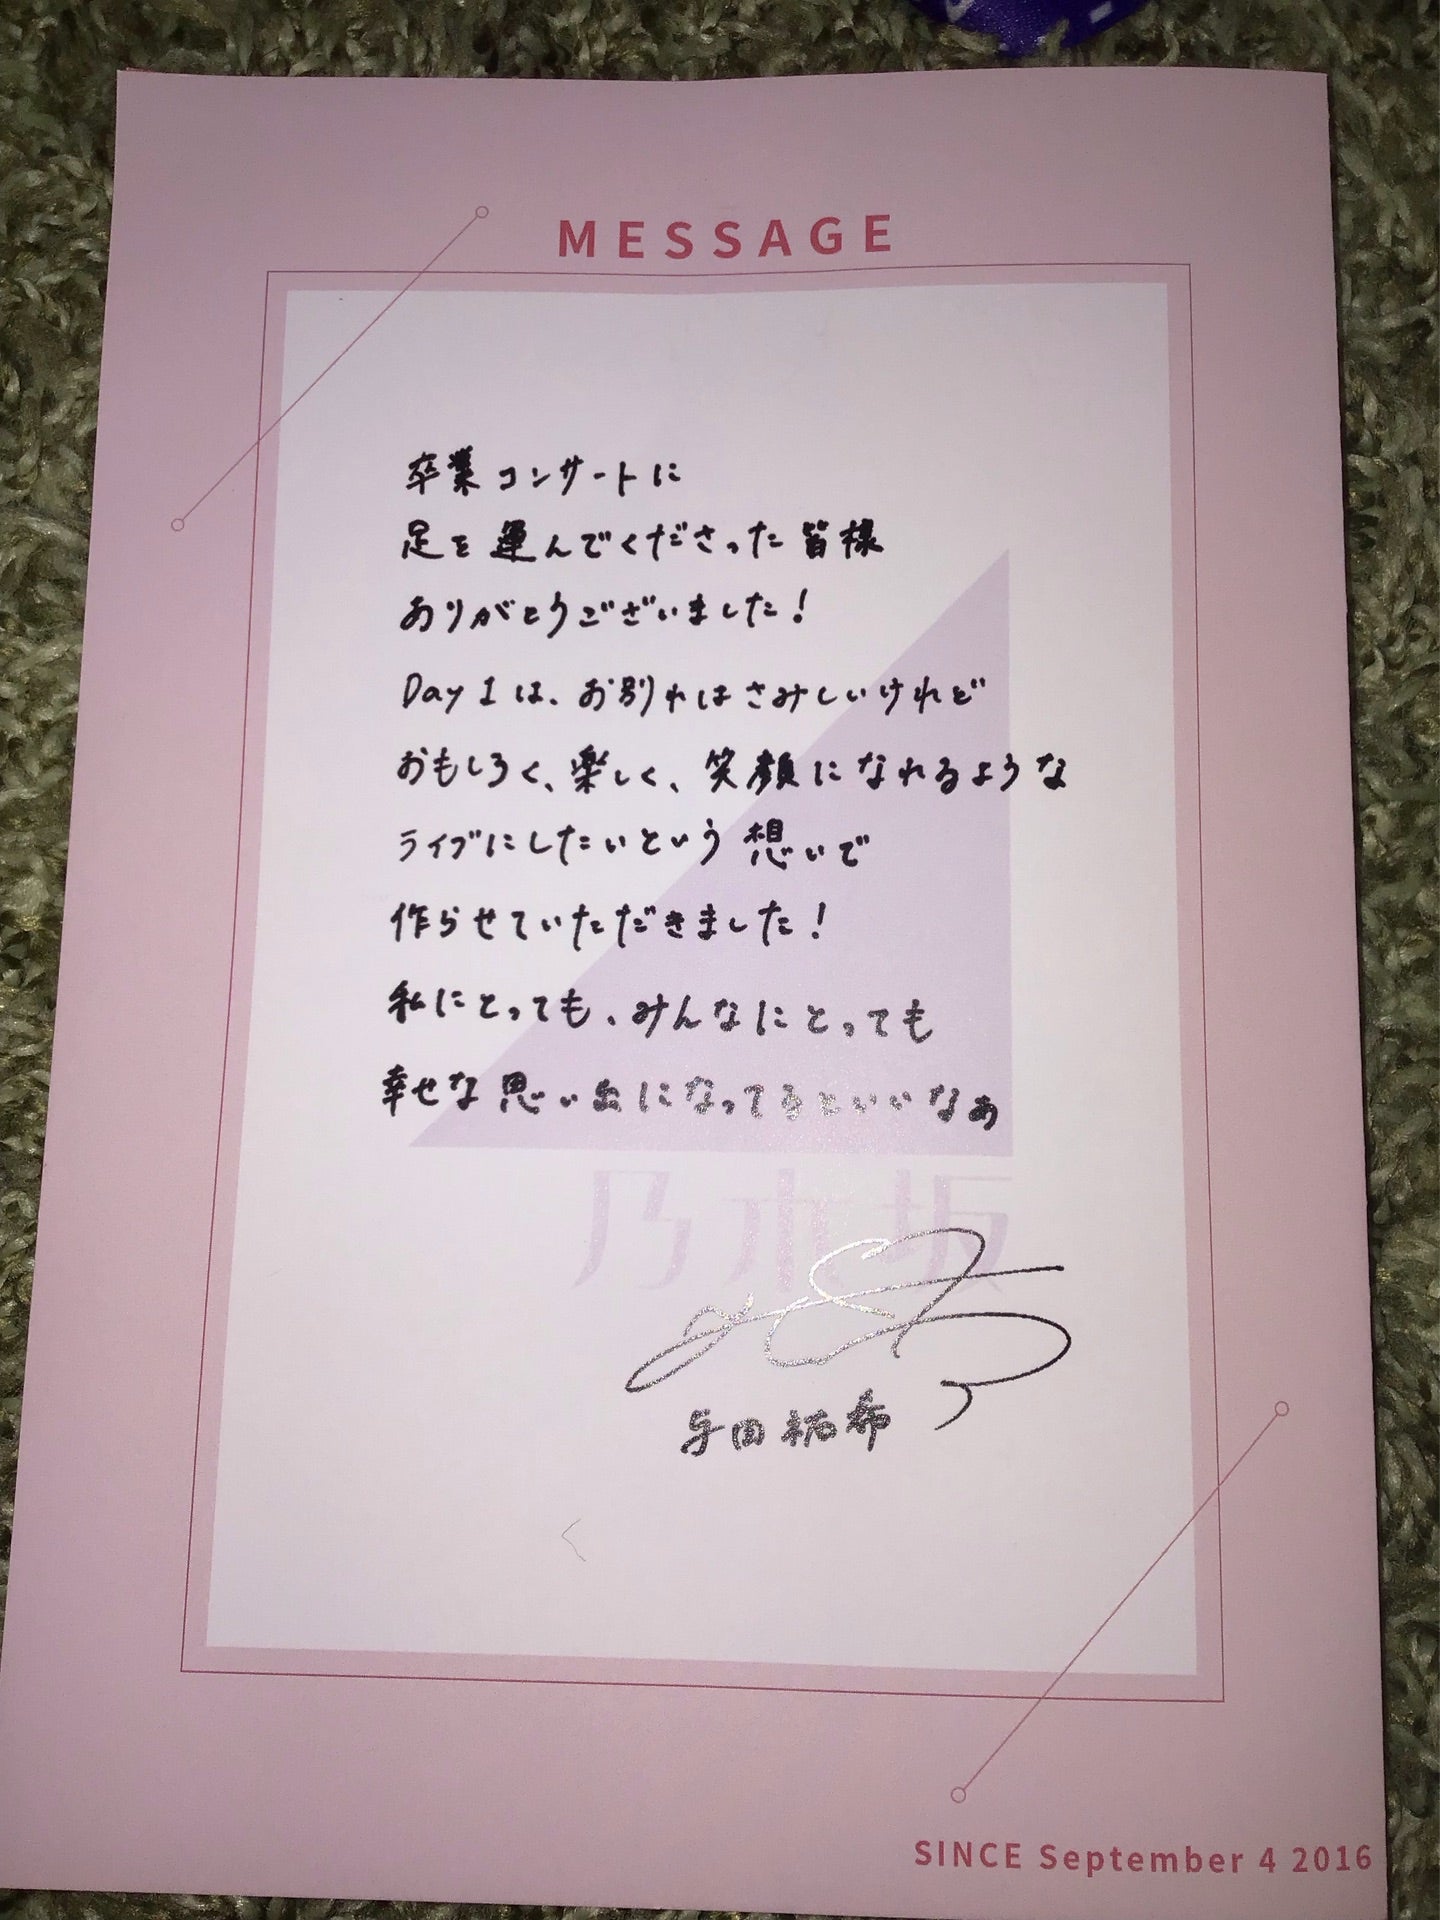 MESSAGE
卒業コンサートに
足を運んでくださった皆様
ありがとうございました！
Day1は、お別れはさみしいけれど
おもしろく、楽しく、笑顔になれるような
ライブにしたいという想いで
作らせていただきました！
私にとっても、みんなにとっても
幸せな思い出になってるといいなぁ
乃木坂
与田祐希
SINCE September 4 2016